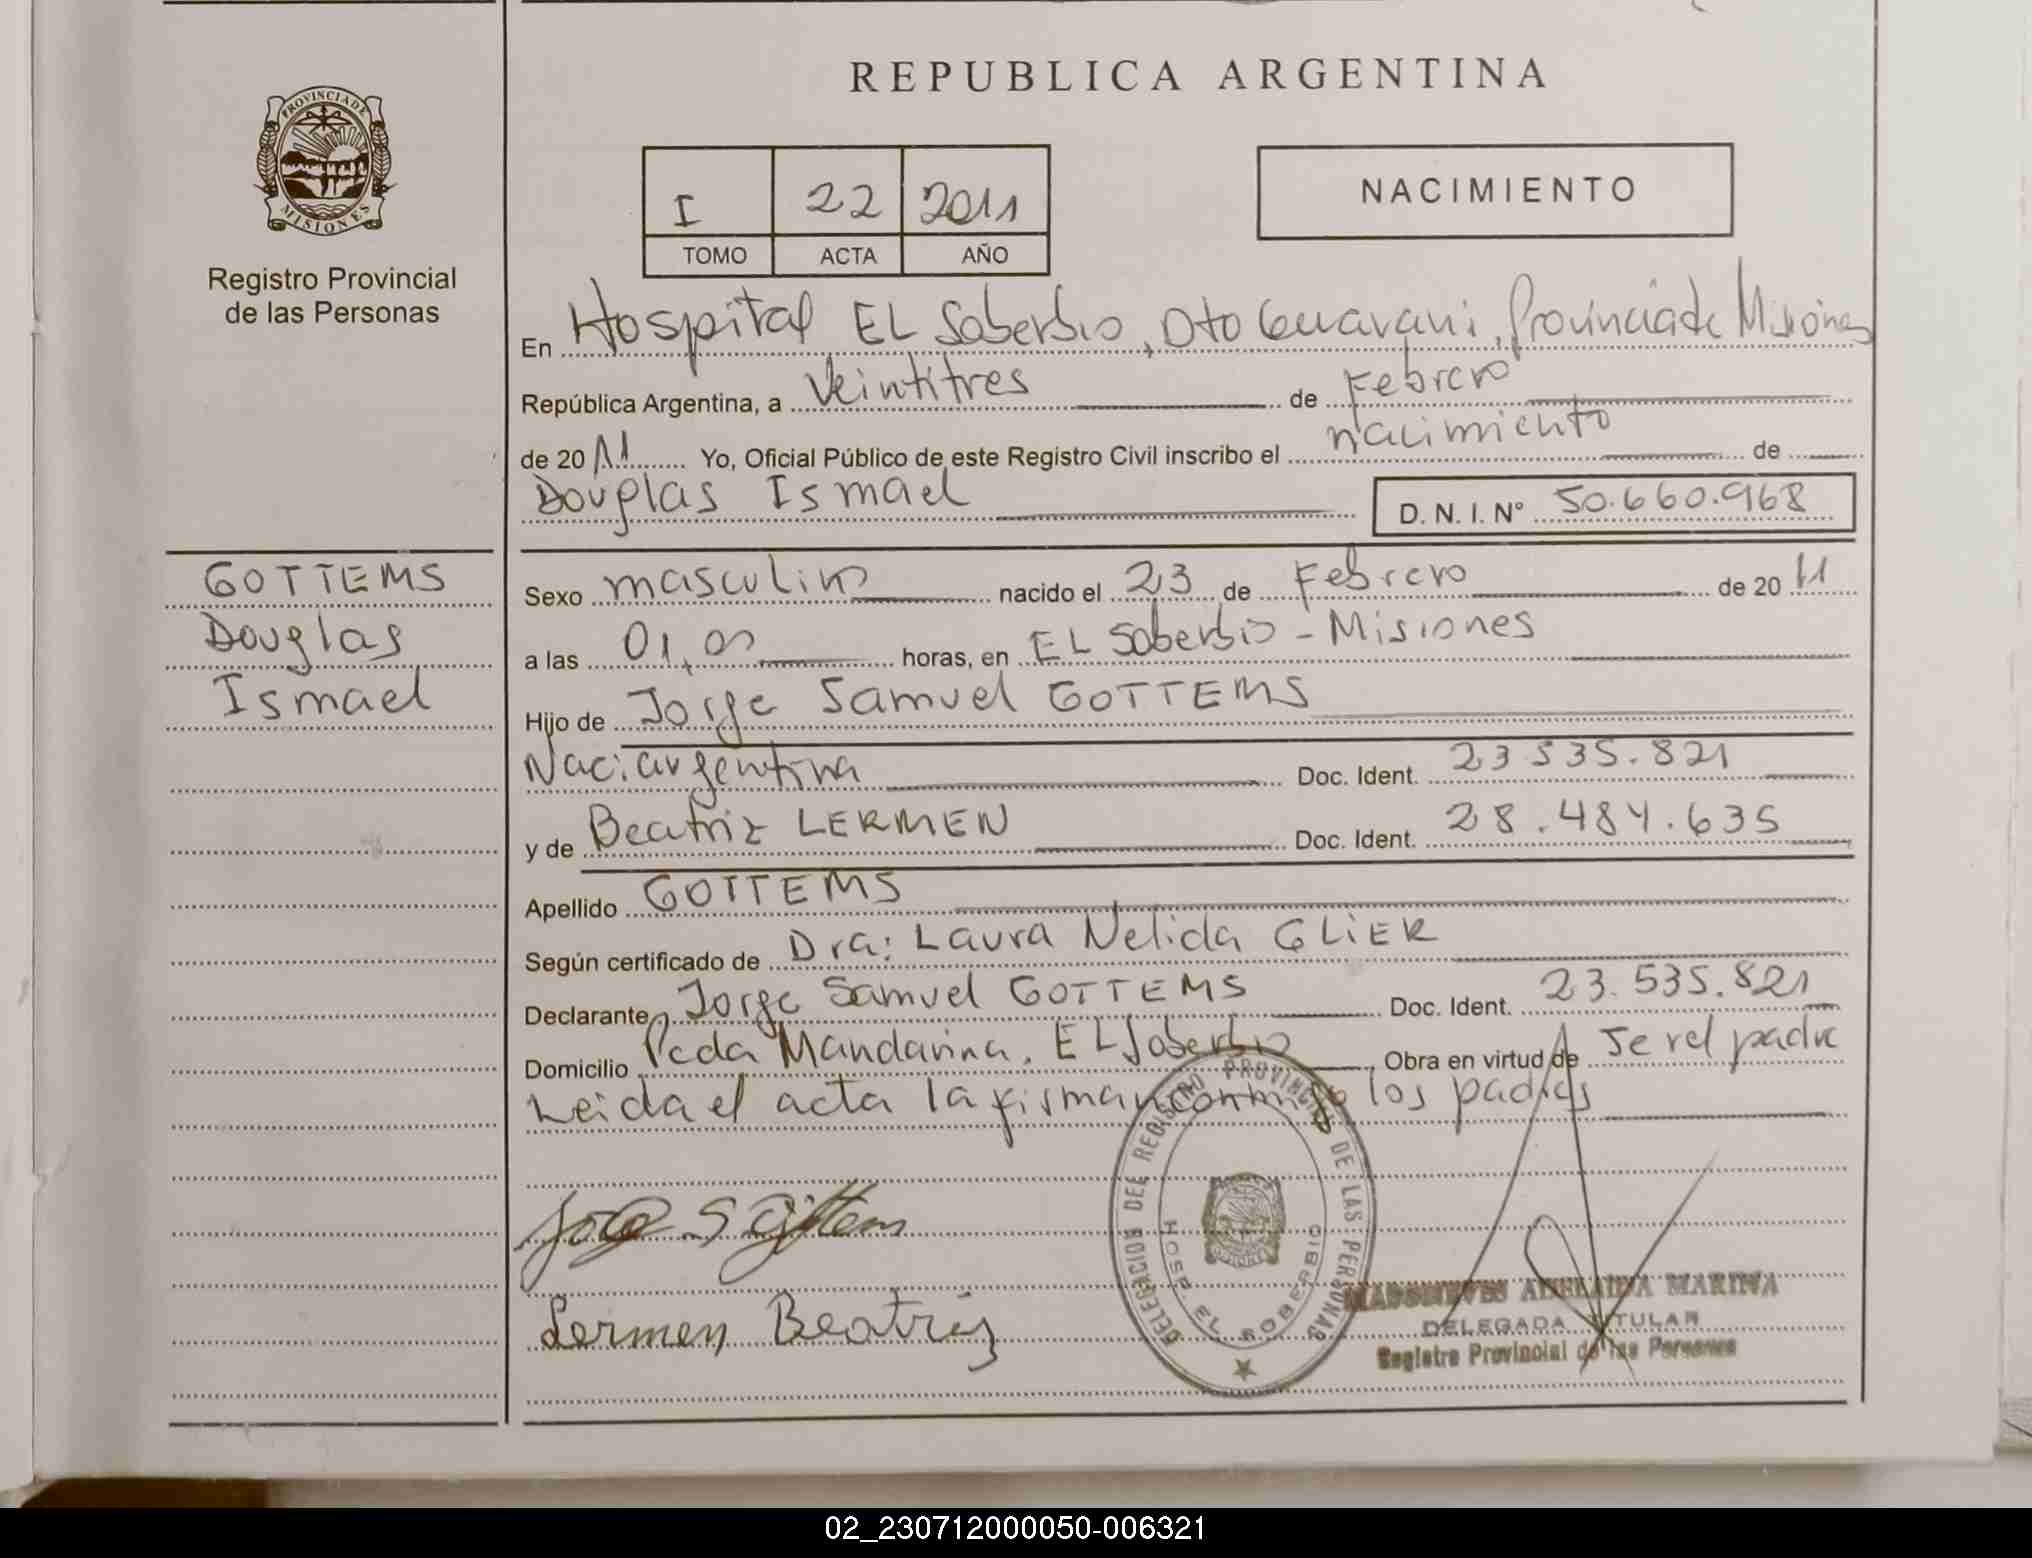 REPUBLICA ARGENTINA
PROVINCIA DE
MISIONES
Registro Provincial
de las Personas
I 22 2011
TOMO ACTA AÑO
NACIMIENTO
En Hospital EL Soberbio, Dto Guarani, Provincia de Misiones
República Argentina, a Veintitres de Febrero
de 2011 Yo, Oficial Público de este Registro Civil inscribo el nacimiento de
Douglas Ismael D. N. I. N° 50.660.968
GOTTEMS
Douglas
Ismael
Sexo masculino nacido el 23 de Febrero de 2011
a las 01,00 horas, en EL Soberbio - Misiones
Hijo de Jorge Samuel GOTTEMS
Nac: argentina Doc. Ident. 23535.821
y de Beatriz LERMEN Doc. Ident. 28.484.635
Apellido GOTTEMS
Según certificado de Dra: Laura Nelida GLIER
Declarante Jorge Samuel GOTTEMS Doc. Ident. 23.535.821
Domicilio Pcda Mandarina, EL Soberbio Obra en virtud de Ser el padre
Leida el acta la firman conmigo los padres
Jorge S Gottems
Lermen Beatriz
DELEGACION DEL REGISTRO PROVINCIAL DE LAS PERSONAS
HOSP. EL SOBERBIO
MARINA
DELEGADA TITULAR
Registro Provincial de las Personas
02_230712000050-006321